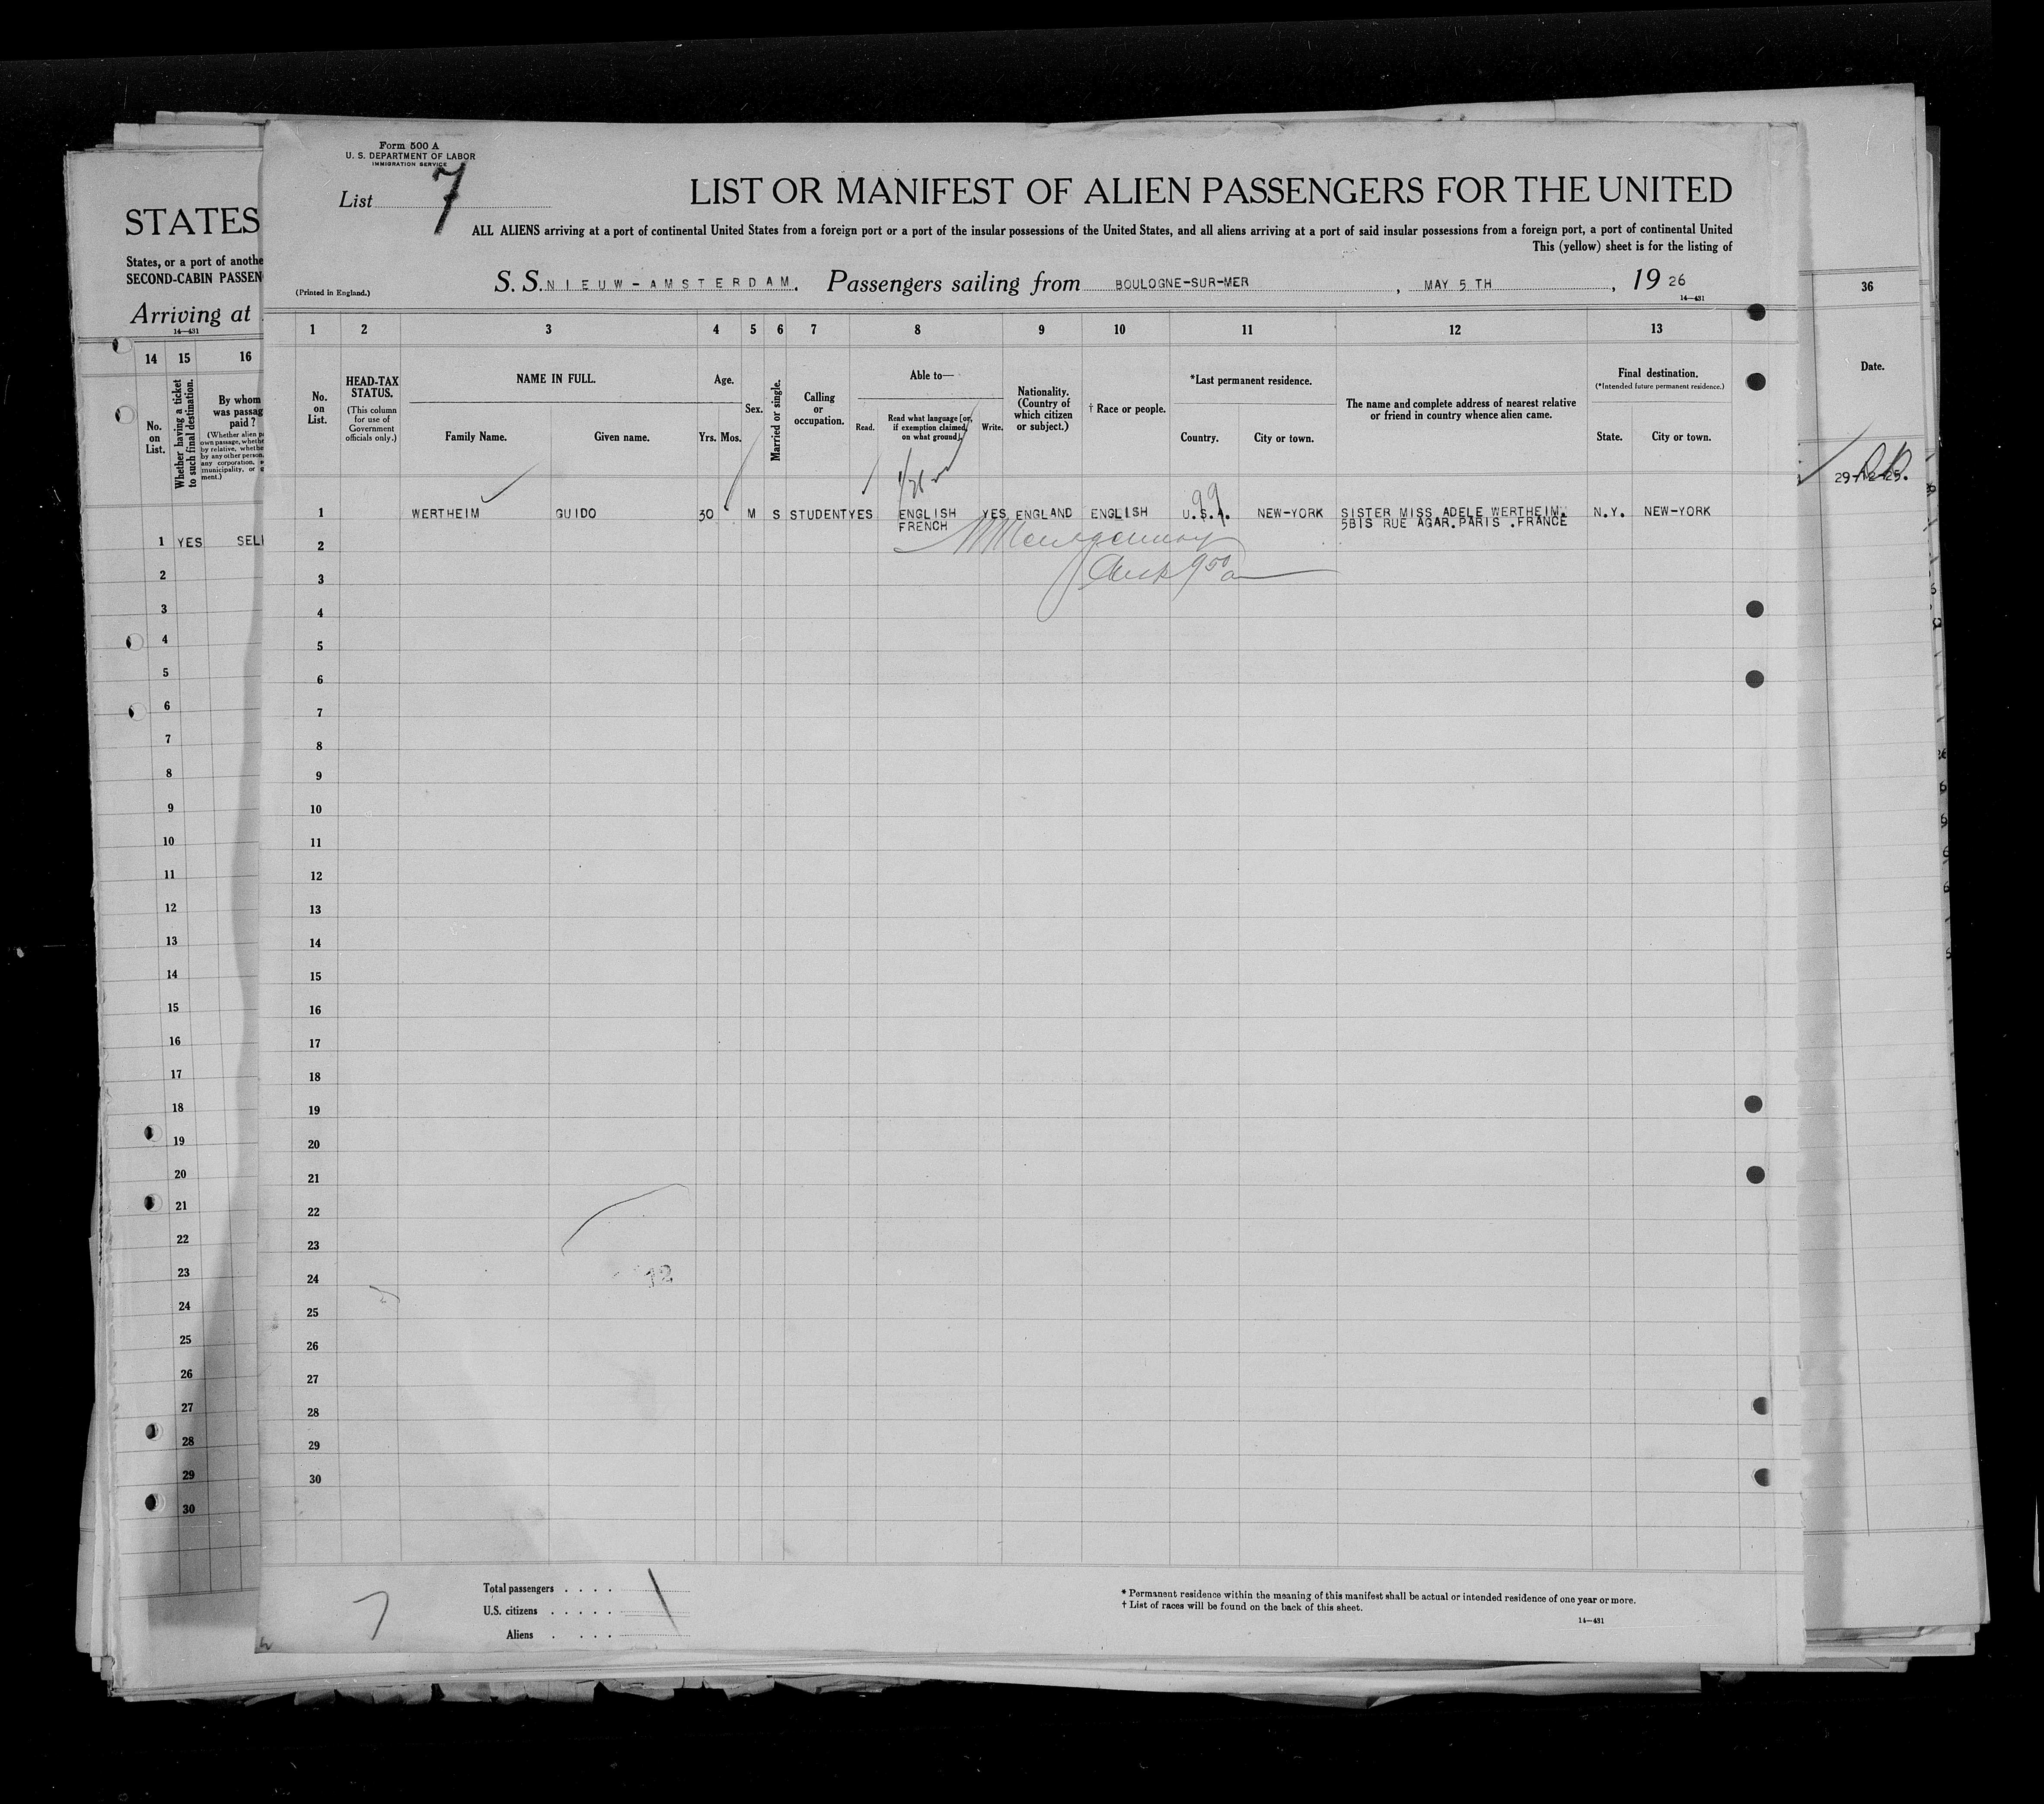 Form 500 A
U. S. DEPARTMENT OF LABOR
IMMIGRATION SERVICE
List 7
LIST OR MANIFEST OF ALIEN PASSENGERS FOR THE UNITED
ALL ALIENS arriving at a port of continental United States from a foreign port or a port of the insular possessions of the United States, and all aliens arriving at a port of said insular possessions from a foreign port, a port of continental United
This (yellow) sheet is for the listing of
(Printed in England.)
S. S. NIEUW-AMSTERDAM. Passengers sailing from BOULOGNE-SUR-MER, MAY 5 TH, 19 26
14—431
1 2 3 4 5 6 7 8 9 10 11 12 13
No. on List.
HEAD-TAX STATUS.
(This column for use of Government officials only.)
NAME IN FULL.
Family Name. Given name.
Age.
Yrs. Mos.
Sex.
Married or single.
Calling or occupation.
Able to—
Read. Read what language [or, if exemption claimed, on what ground]. Write.
Nationality. (Country of which citizen or subject.)
† Race or people.
*Last permanent residence.
Country. City or town.
The name and complete address of nearest relative or friend in country whence alien came.
Final destination.
(*Intended future permanent residence.)
State. City or town.
99
1 WERTHEIM GUIDO 30 M S STUDENT YES ENGLISH YES ENGLAND ENGLISH U.S.A. NEW-YORK SISTER MISS ADELE WERTHEIM. N.Y. NEW-YORK
FRENCH 5BIS RUE AGAR.PARIS .FRANCE
2
3
4
5
6
7
8
9
10
11
12
13
14
15
16
17
18
19
20
21
22
23
24
12
25
26
27
28
29
30
7
Total passengers . . . .
U.S. citizens . . . . .
Aliens . . . .
* Permanent residence within the meaning of this manifest shall be actual or intended residence of one year or more.
† List of races will be found on the back of this sheet.
14—431
STATES
States, or a port of anothe
SECOND-CABIN PASSEN
Arriving at
14—431
14 15 16
No. on List.
Whether having a ticket to such final destination.
By whom was passag paid ?
(Whether alien pa
own passage, whethe
by relative, whethe
by any other person,
any corporation,
municipality, or
ment.)
1 YES SEL
2
3
4
5
6
7
8
9
10
11
12
13
14
15
16
17
18
19
20
21
22
23
24
25
26
27
28
29
30
36
Date.
29-12-25.